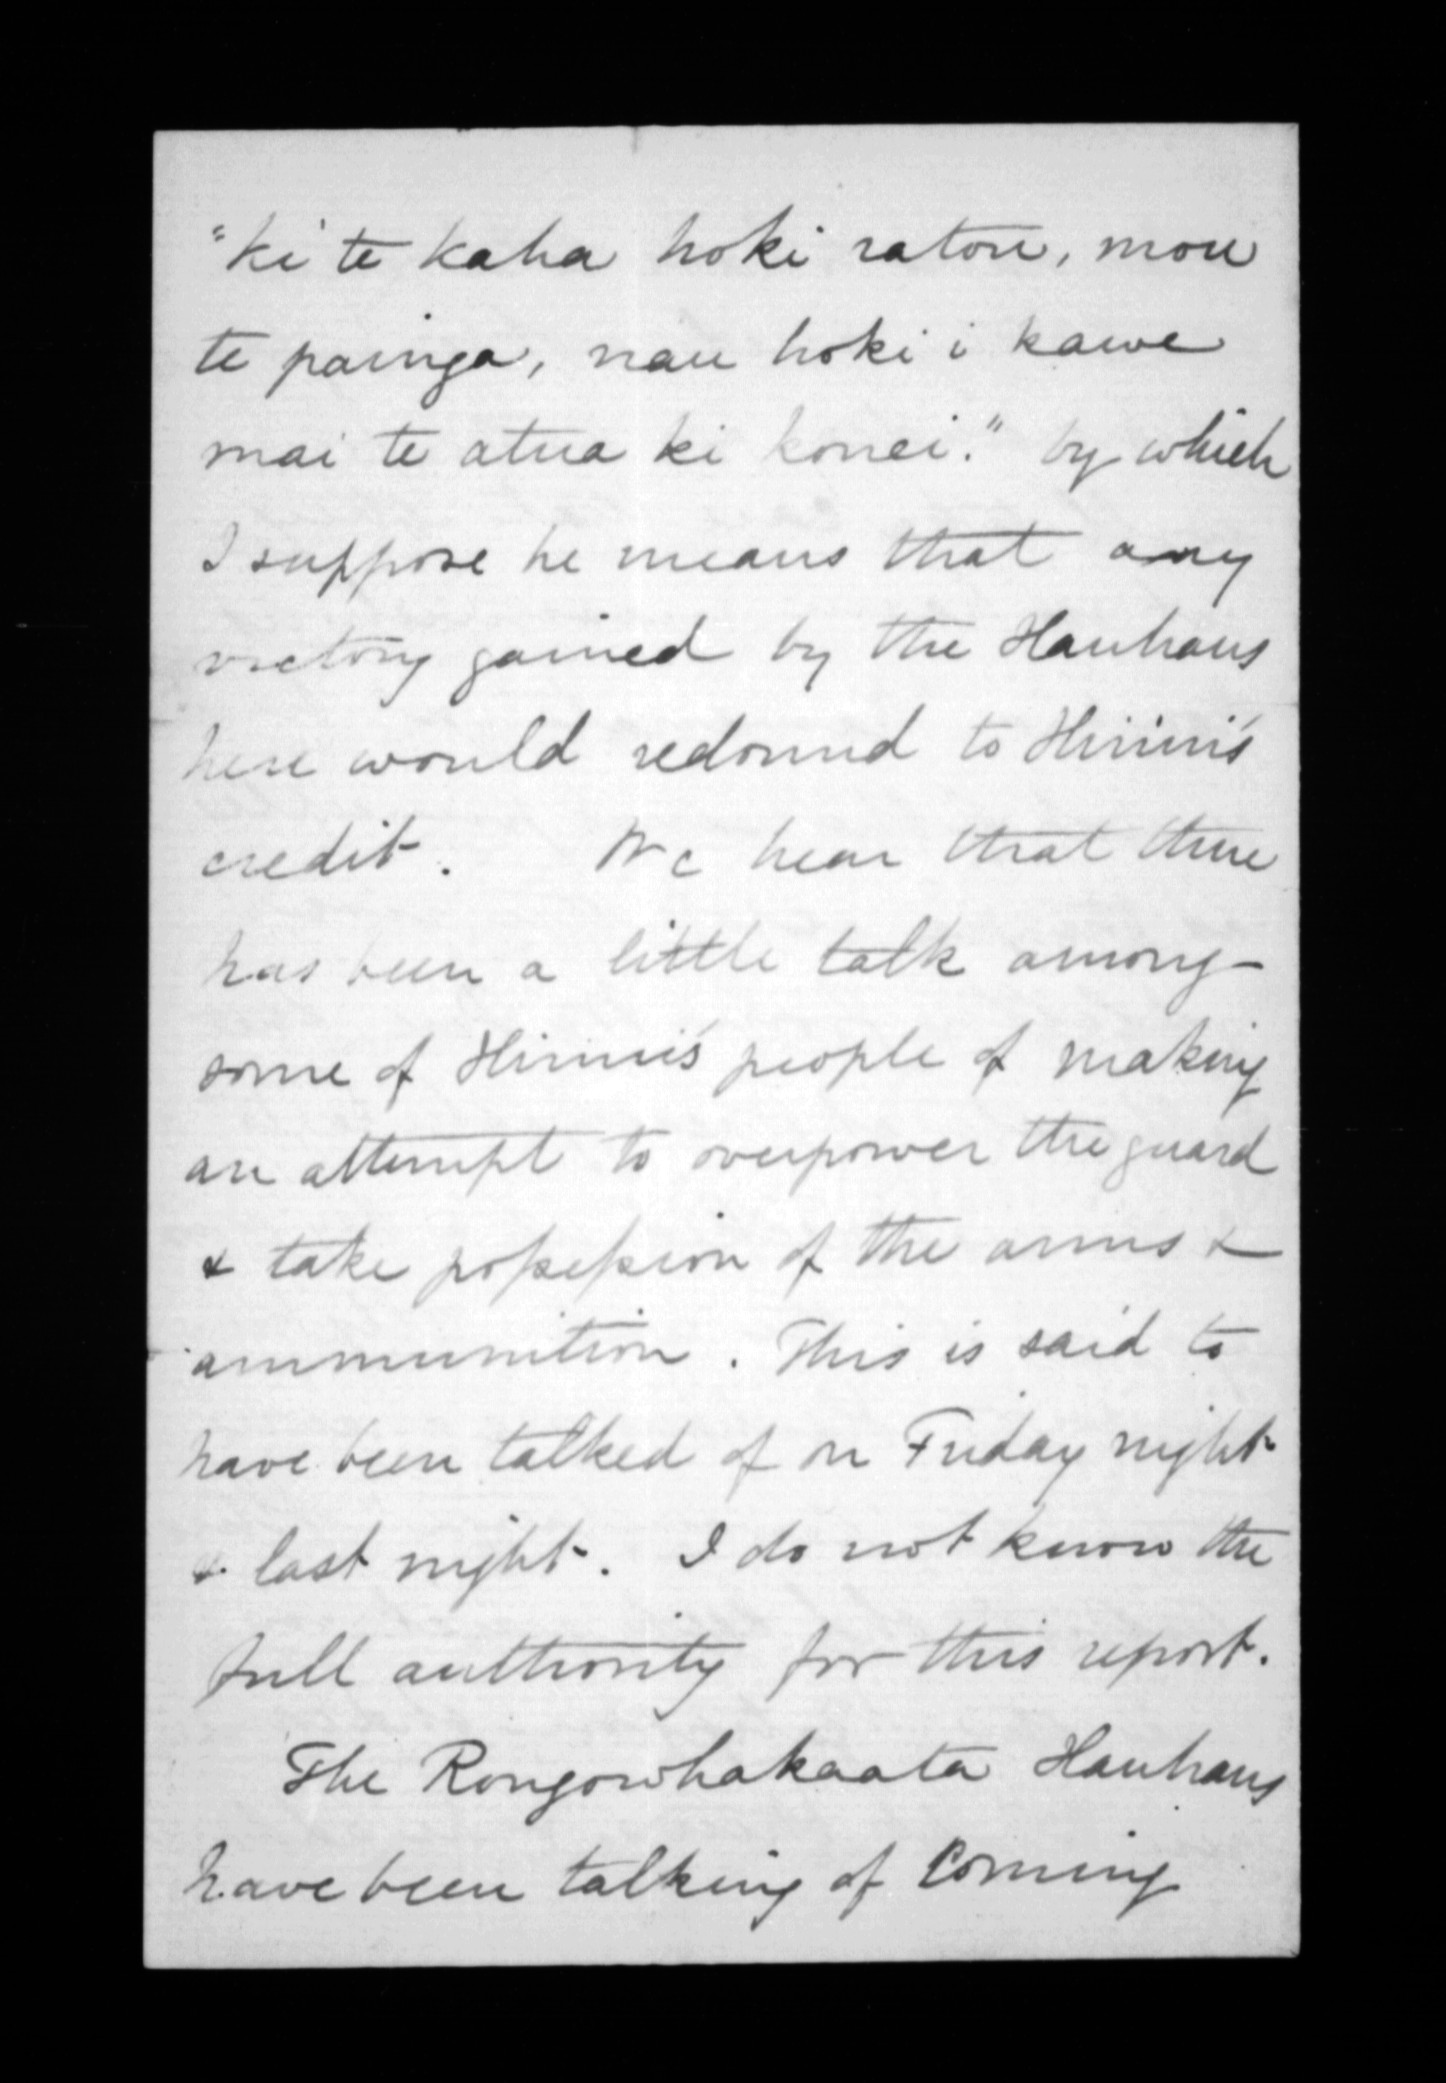 "ki te kaha hoki ratou, mou
te painga, nau hoki i kawe
mai te atua ki konei." by which
I suppose he means that any
victory gained by the Hauhaus
here would redound to Hirini's
credit. We hear that there
has been a little talk among
some of Hirini's people of making
an attempt to overpower the guard
& take possession of the arms &
ammunition. This is said to
have been talked of on Friday night
& last night. I do not know the
full authority for this report.
The Rongowhakaata Hauhaus
have been talking of coming